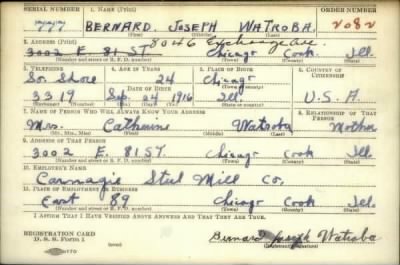 SERIAL NUMBER 1. NAME (Print) ORDER NUMBER
BERNARD JOSEPH WATROBA 2082
(First) (Middle) (Last)
2. ADDRESS (Print) 8046 Exchange Ave.
3002 E. 81 ST. Chicago Cook Ill.
(Number and street or R. F. D. number) (Town) (County) (State)
3. TELEPHONE 4. AGE IN YEARS 5. PLACE OF BIRTH 6. COUNTRY OF CITIZENSHIP
So. Shore 24 Chicago
DATE OF BIRTH
3319 Sep. 24 1916 Ill. U. S. A.
7. NAME OF PERSON WHO WILL ALWAYS KNOW YOUR ADDRESS 8. RELATIONSHIP OF THAT PERSON
Mrs. Catherine Watroba Mother
(Mr., Mrs., Miss) (First) (Middle) (Last)
9. ADDRESS OF THAT PERSON
3002 E. 81 ST. Chicago Cook Ill.
(Number and street or R. F. D. number) (Town) (County) (State)
10. EMPLOYER'S NAME
Carnagie Steel Mill Co.
11. PLACE OF EMPLOYMENT OR BUSINESS
East 89 Chicago Cook Ill.
(Number and street or R. F. D. number) (Town) (County) (State)
I AFFIRM THAT I HAVE VERIFIED ABOVE ANSWERS AND THAT THEY ARE TRUE.
REGISTRATION CARD
D. S. S. Form 1 Bernard Joseph Watroba